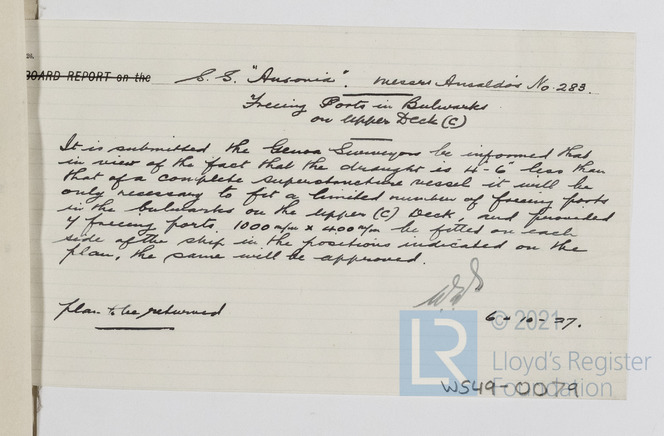 BOARD REPORT on the S.S. "Ausonia". Messrs Ansaldo's No. 283.
Freeing Ports in Bulwarks
on Upper Deck (C)
It is submitted the Genoa Surveyors be informed that
in view of the fact that the draught is 4'-6" less than
that of a complete superstructure vessel it will be
only necessary to fit a limited number of freeing ports
in the bulwarks on the Upper (C) Deck, and provided
4 freeing ports. 1000 m/m x 400 m/m be fitted on each
side of the ship in the positions indicated on the
plan, the same will be approved.
plan to be returned
6-10-27.
© 2021
Lloyd's Register
Foundation
LR
W549-0079